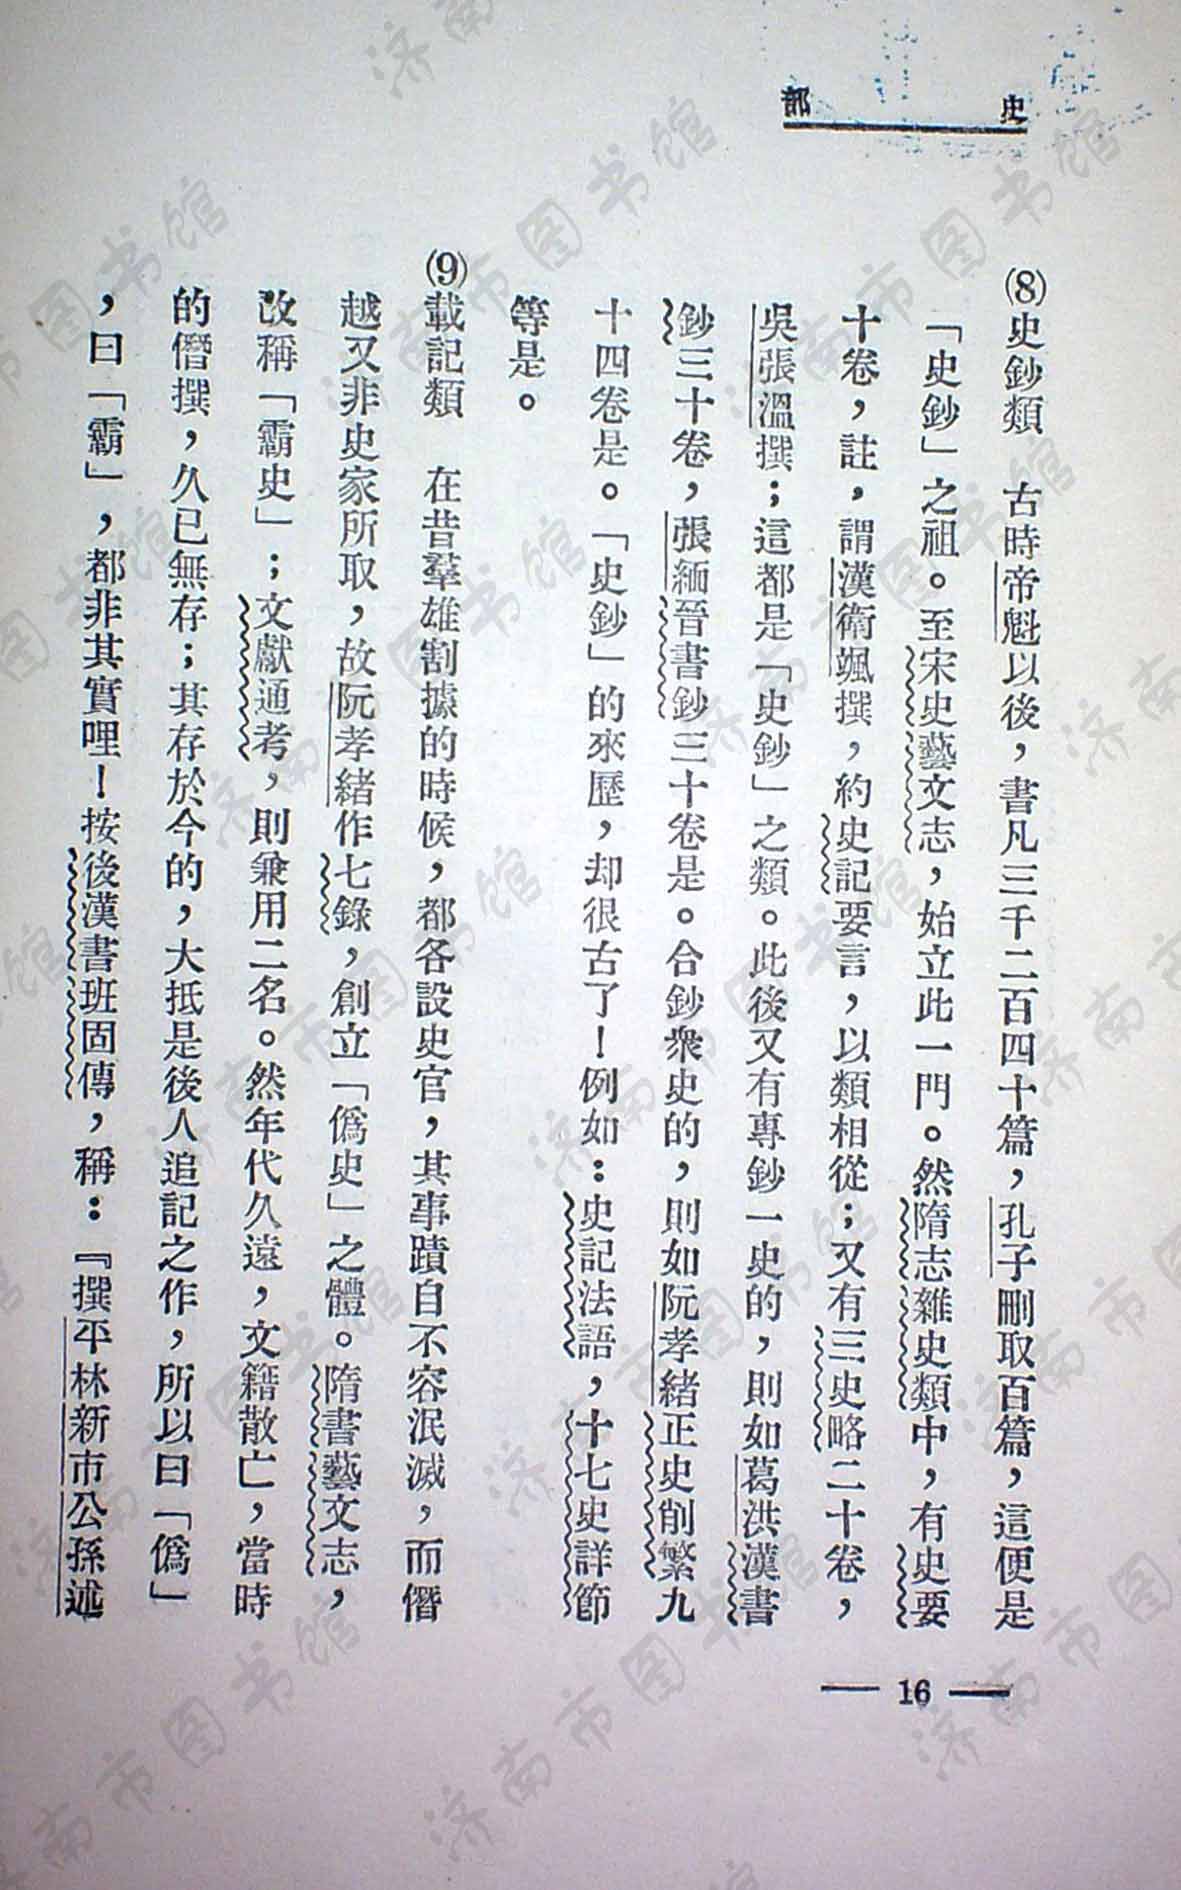 史部
⑻史鈔類　古時帝魁以後，書凡三千二百四十篇，孔子刪取百篇，這便是
「史鈔」之祖。至宋史藝文志，始立此一門。然隋志雜史類中，有史要
十卷，註，謂漢衛颯撰，約史記要言，以類相從；又有三史略二十卷，
吳張溫撰；這都是「史鈔」之類。此後又有專鈔一史的，則如葛洪漢書
鈔三十卷，張緬晉書鈔三十卷是。合鈔衆史的，則如阮孝緒正史削繁九
十四卷是。「史鈔」的來歷，却很古了！例如：史記法語，十七史詳節
等是。
⑼載記類　在昔羣雄割據的時候，都各設史官，其事蹟自不容泯滅，而僭
越又非史家所取，故阮孝緒作七錄，創立「僞史」之體。隋書藝文志，
改稱「霸史」；文獻通考，則兼用二名。然年代久遠，文籍散亡，當時
的僭撰，久已無存；其存於今的，大抵是後人追記之作，所以曰「僞」
，曰「霸」，都非其實哩！按後漢書班固傳，稱：『撰平林新市公孫述
— 16 —
济南市图书馆